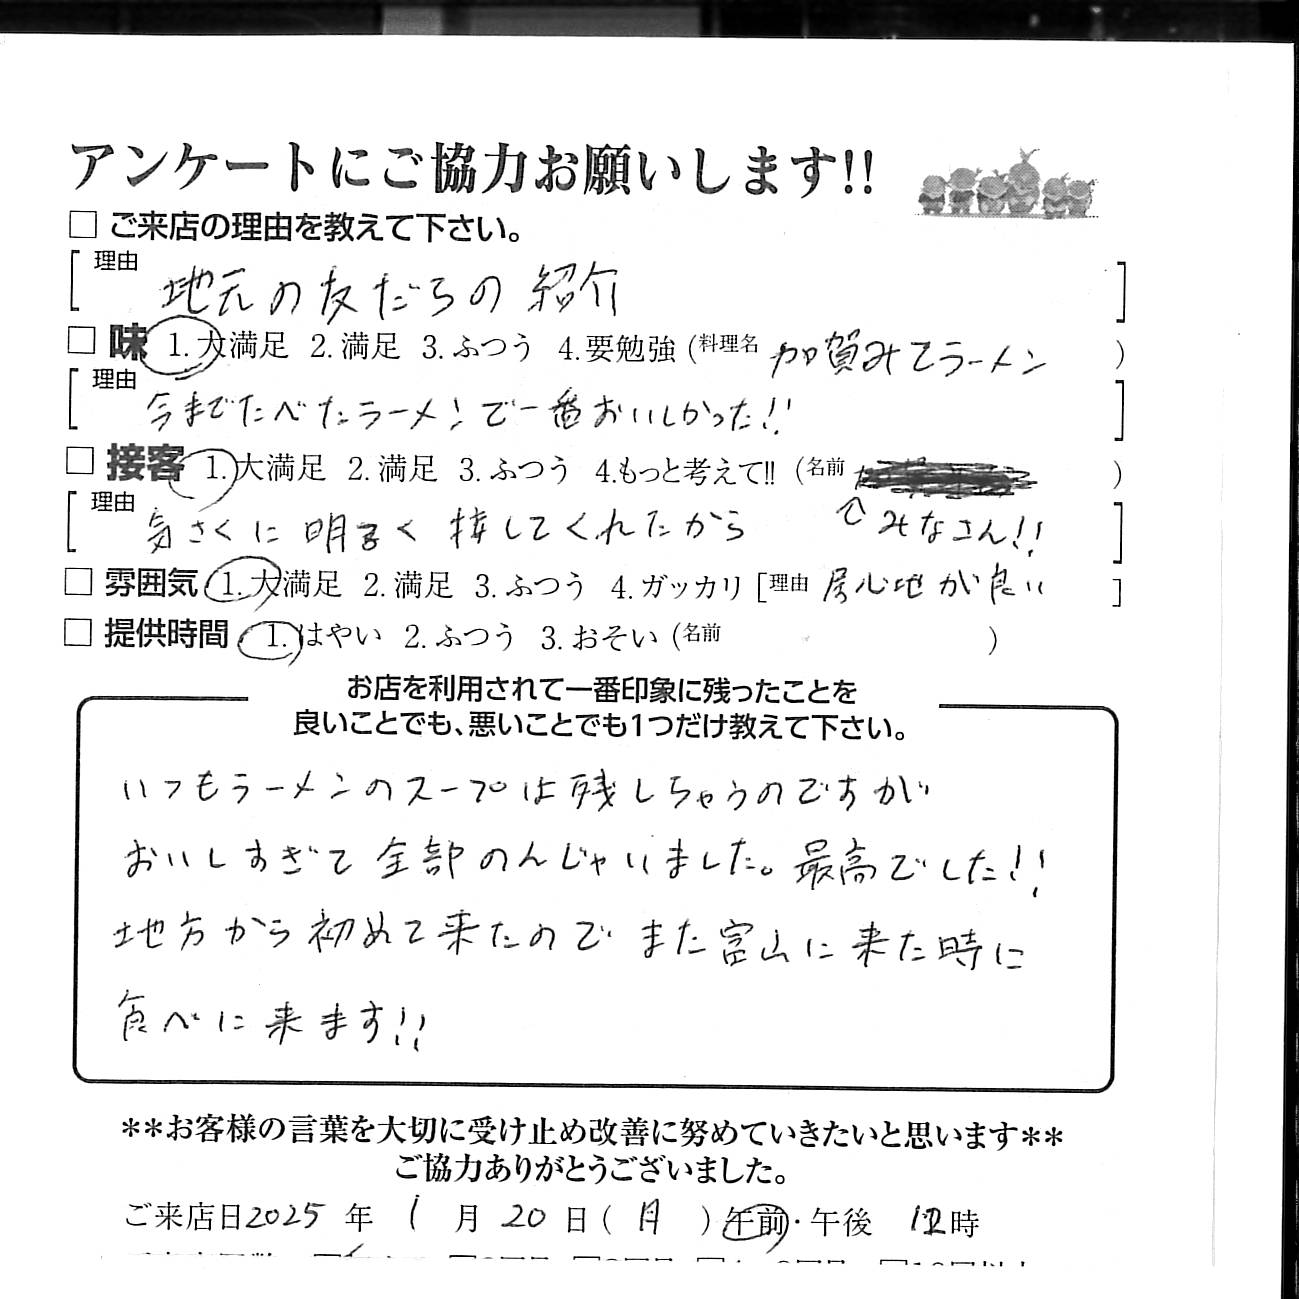 アンケートにご協力お願いします!!
□ ご来店の理由を教えて下さい。
[理由 地元の友だちの紹介 ]
□ 味 1.大満足 2.満足 3.ふつう 4.要勉強 (料理名 加賀みそラーメン )
[理由 今までたべたラーメンで一番おいしかった!! ]
□ 接客 1.大満足 2.満足 3.ふつう 4.もっと考えて!! (名前 )
[理由 気さくに明るく接してくれたから ↑みなさん!! ]
□ 雰囲気 1.大満足 2.満足 3.ふつう 4.ガッカリ [理由 居心地が良い ]
□ 提供時間 1.はやい 2.ふつう 3.おそい (名前 )
お店を利用されて一番印象に残ったことを
良いことでも、悪いことでも1つだけ教えて下さい。
いつもラーメンのスープは残しちゃうのですが
おいしすぎて全部のんじゃいました。最高でした!!
地方から初めて来たのでまた富山に来た時に
食べに来ます!!
**お客様の言葉を大切に受け止め改善に努めていきたいと思います**
ご協力ありがとうございました。
ご来店日2025 年 1 月 20 日 ( 月 ) 午前・午後 時